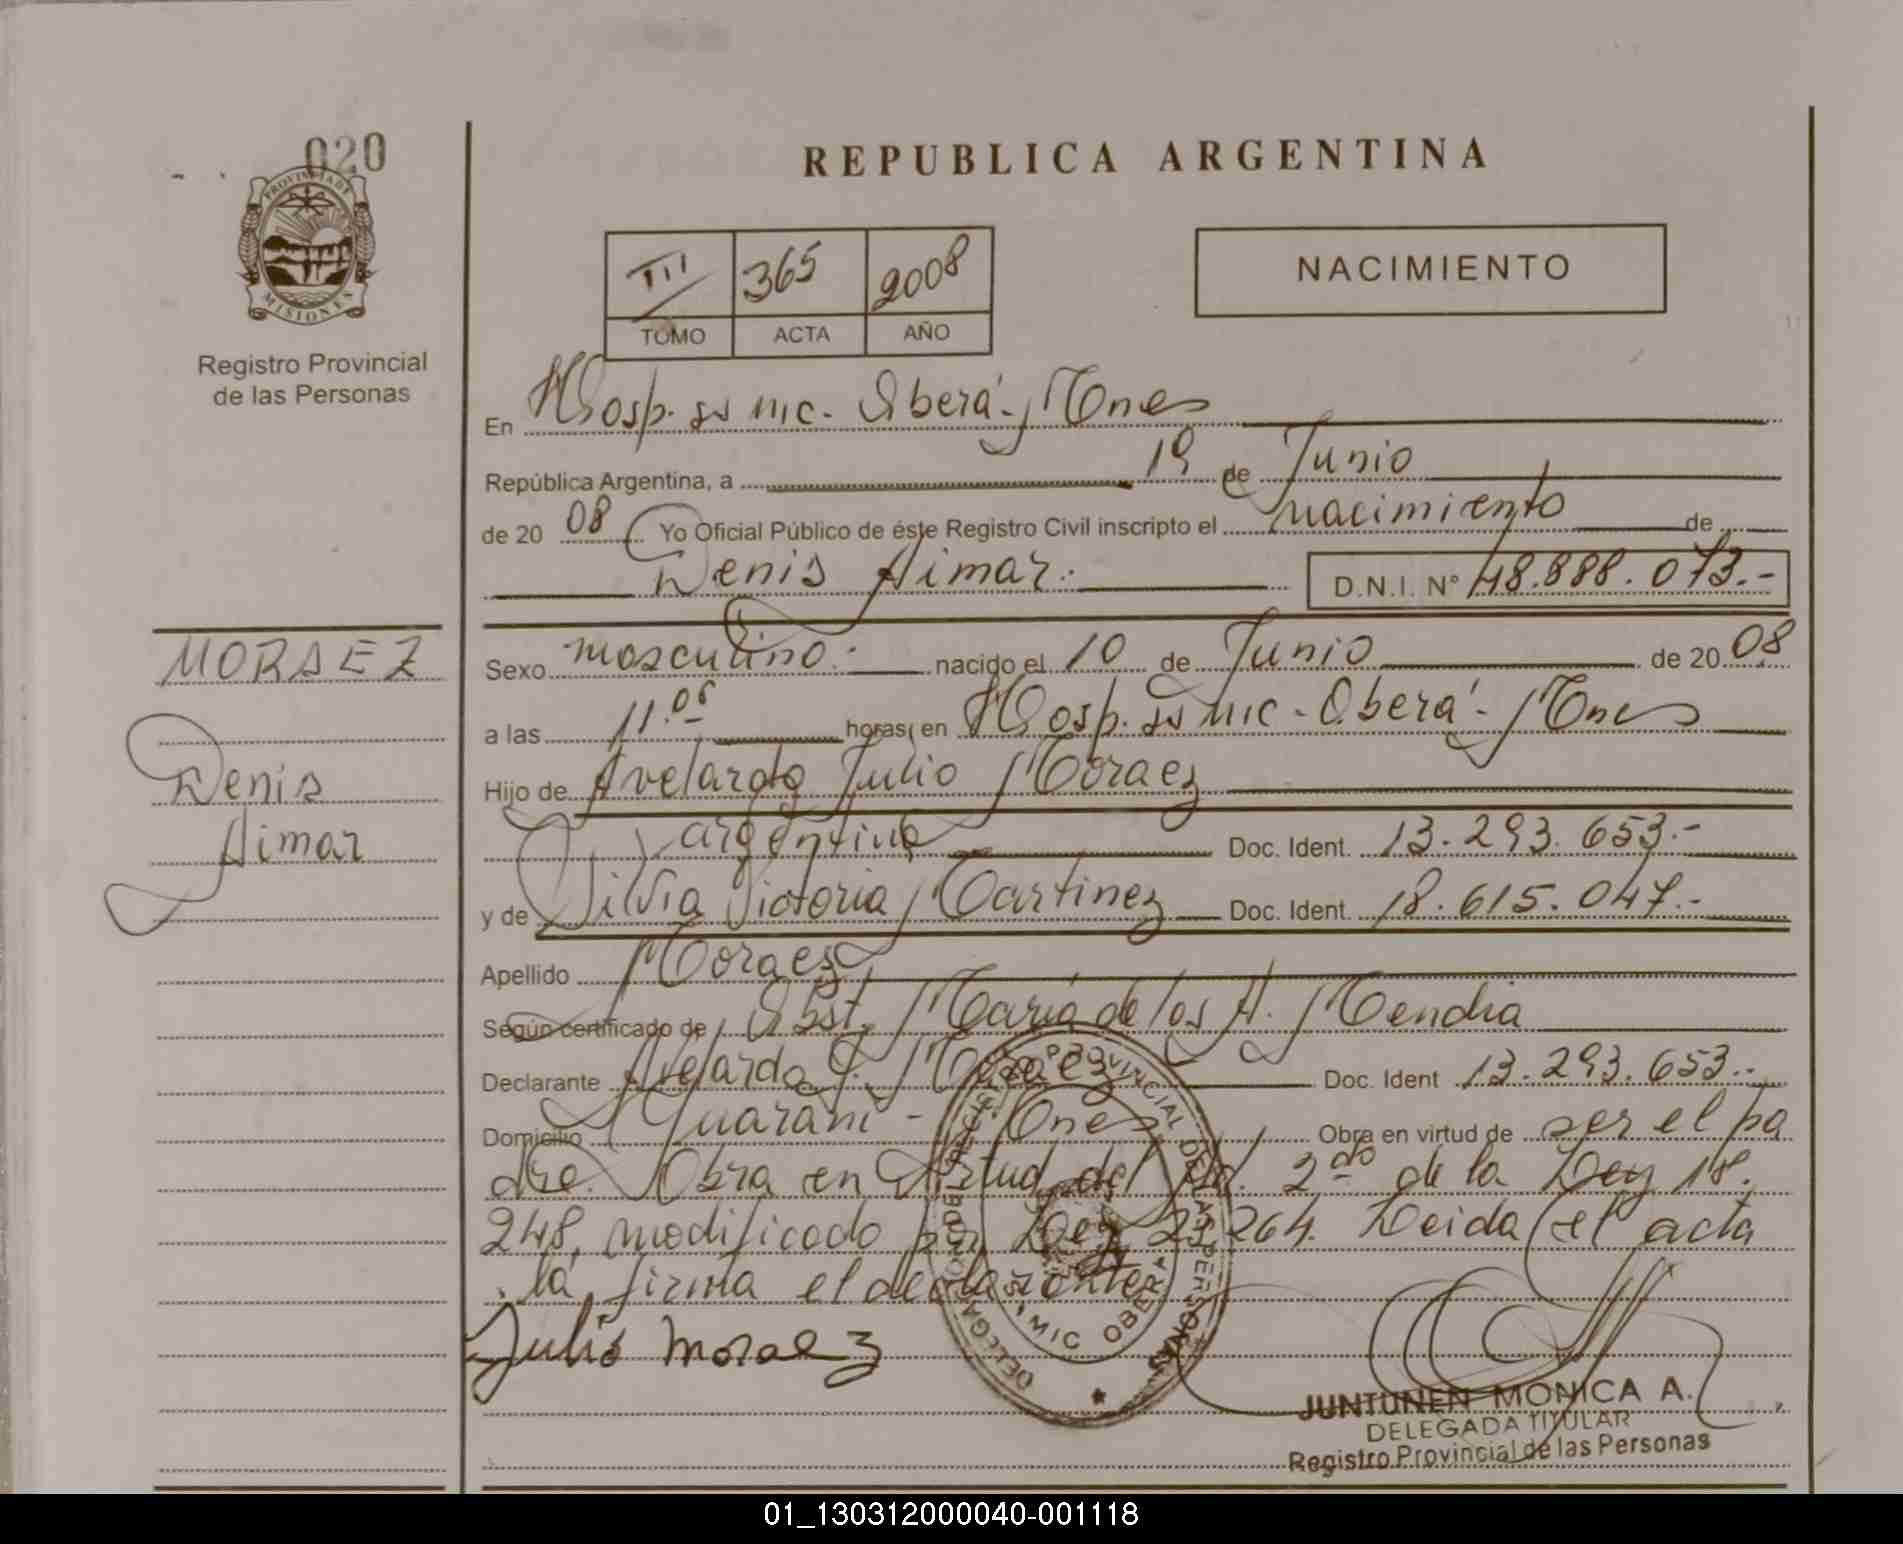 020
PROVINCIA DE
MISIONES
Registro Provincial
de las Personas
REPUBLICA ARGENTINA
III 365 2008
TOMO ACTA AÑO
NACIMIENTO
En Hosp. Mic. Oberá - Mnes
República Argentina, a 19 de Junio
de 20 08 Yo Oficial Público de éste Registro Civil inscripto el nacimiento de
Denis Aimar.- D.N.I. N° 48.888.073.-
MORAEZ
Denis
Aimar
Sexo masculino.- nacido el 10 de Junio de 20 08
a las 11.05 horas, en Hosp. Mic - Oberá - Mnes
Hijo de Avelardo Julio Moraez
argentino Doc. Ident. 13.293.653.-
y de Silvia Victoria Martinez Doc. Ident. 18.615.047.-
Apellido Moraez
Según certificado de Obst. María de los A. Mendia
Declarante Avelardo J. Moraez Doc. Ident 13.293.653.-
Domicilio Guaraní - Mnes Obra en virtud de ser el pa
dre. Obra en virtud del Art. 2do de la Ley 18.
248, modificado por Ley 23.264. Leida el acta
la firma el declarante
Julio Moraez
REGISTRO PROVINCIAL DE LAS PERSONAS
DELEGACION
MIC OBERA
JUNTUNEN MONICA A.
DELEGADA TITULAR
Registro Provincial de las Personas
01_130312000040-001118